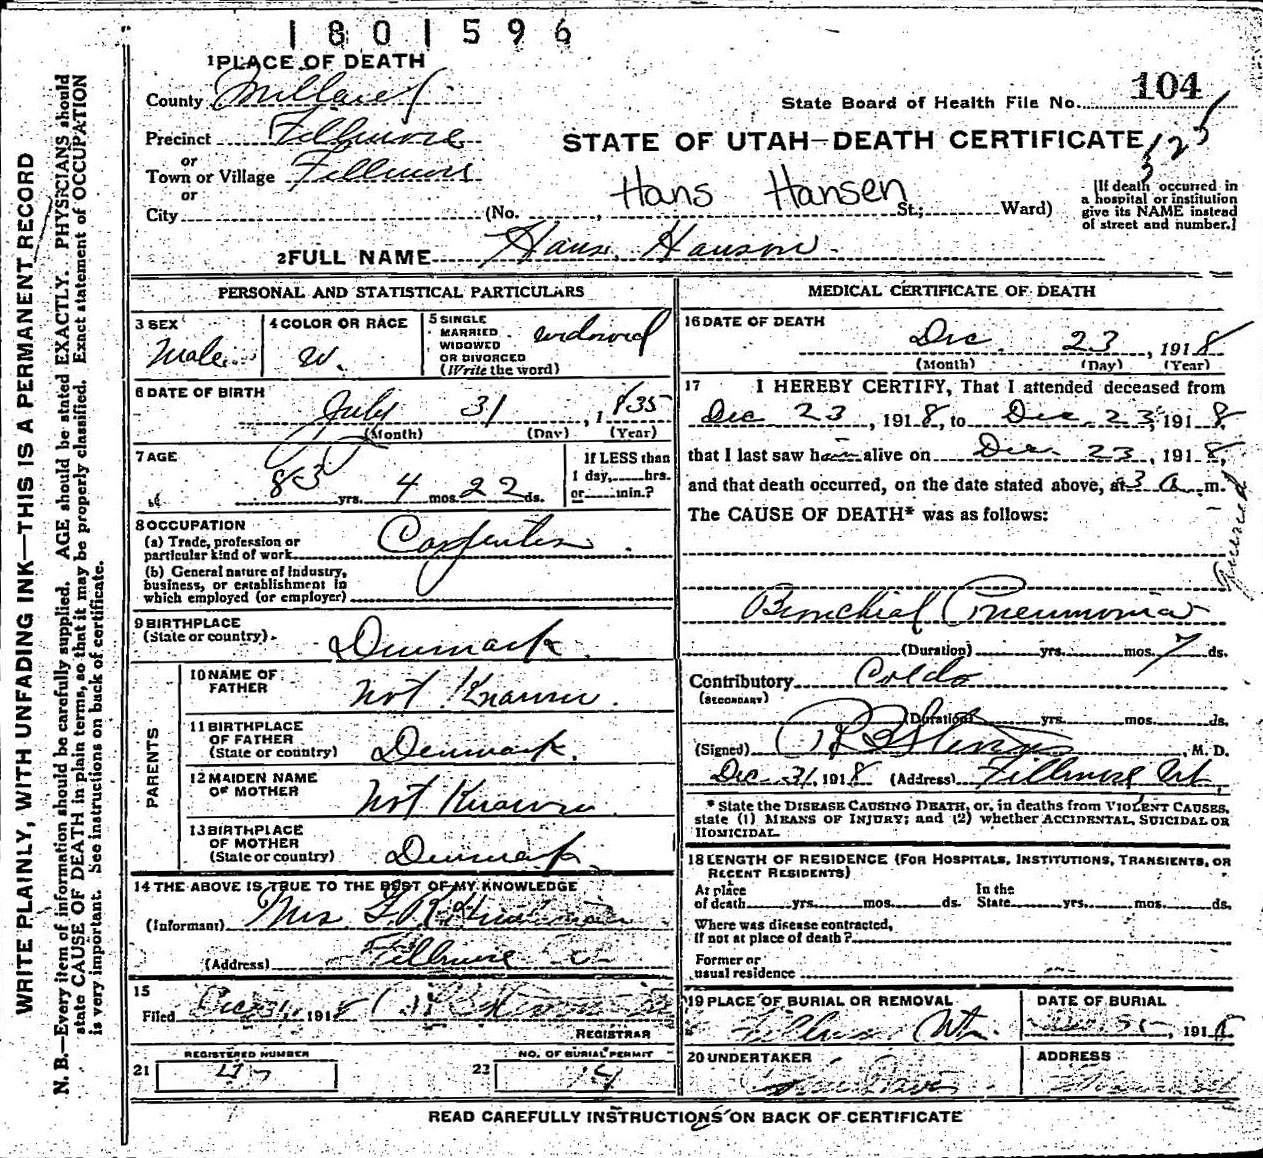 1801596
1 PLACE OF DEATH
County Millard
104
State Board of Health File No.
Precinct Fillmore
STATE OF UTAH—DEATH CERTIFICATE
or
Town or Village Fillmore
or
Hans Hansen
City (No. , St.; Ward)
[If death occurred in a hospital or institution give its NAME instead of street and number.]
2 FULL NAME Hans Hanson
WRITE PLAINLY, WITH UNFADING INK—THIS IS A PERMANENT RECORD
N. B.—Every item of information should be carefully supplied. AGE should be stated EXACTLY. PHYSICIANS should
state CAUSE OF DEATH in plain terms, so that it may be properly classified. Exact statement of OCCUPATION
is very important. See instructions on back of certificate.
PERSONAL AND STATISTICAL PARTICULARS
3 SEX
Male
4 COLOR OR RACE
W.
5 SINGLE
MARRIED
WIDOWED
OR DIVORCED
(Write the word)
widowed
6 DATE OF BIRTH
July 31, 1835
(Month) (Day) (Year)
7 AGE
83 yrs. 4 mos. 22 ds.
If LESS than
1 day, hrs.
or min.?
8 OCCUPATION
(a) Trade, profession or
particular kind of work Carpenter
(b) General nature of industry,
business, or establishment in
which employed (or employer)
9 BIRTHPLACE
(State or country) Denmark
PARENTS
10 NAME OF
FATHER Not Known
11 BIRTHPLACE
OF FATHER
(State or country) Denmark
12 MAIDEN NAME
OF MOTHER Not Known
13 BIRTHPLACE
OF MOTHER
(State or country) Denmark
14 THE ABOVE IS TRUE TO THE BEST OF MY KNOWLEDGE
(Informant) Mrs.
(Address) Fillmore
15
Filed Dec 31, 1918
REGISTRAR
REGISTERED NUMBER
21
NO. OF BURIAL PERMIT
22
MEDICAL CERTIFICATE OF DEATH
16 DATE OF DEATH
Dec 23, 1918
(Month) (Day) (Year)
17 I HEREBY CERTIFY, That I attended deceased from
Dec 23, 1918, to Dec 23, 1918,
that I last saw him alive on Dec 23, 1918,
and that death occurred, on the date stated above, at 3 a.m.
The CAUSE OF DEATH* was as follows:
Bronchial Pneumonia
(Duration) yrs. mos. 7 ds.
Contributory Colds
(SECONDARY)
(Duration) yrs. mos. ds.
(Signed) M. D.
Dec 31, 1918 (Address) Fillmore Ut.
* State the DISEASE CAUSING DEATH, or, in deaths from VIOLENT CAUSES,
state (1) MEANS OF INJURY; and (2) whether ACCIDENTAL, SUICIDAL OR
HOMICIDAL.
18 LENGTH OF RESIDENCE (FOR HOSPITALS, INSTITUTIONS, TRANSIENTS, OR
RECENT RESIDENTS)
At place
of death yrs. mos. ds.
In the
State yrs. mos. ds.
Where was disease contracted,
if not at place of death?
Former or
usual residence
19 PLACE OF BURIAL OR REMOVAL
DATE OF BURIAL
191
20 UNDERTAKER
ADDRESS
READ CAREFULLY INSTRUCTIONS ON BACK OF CERTIFICATE